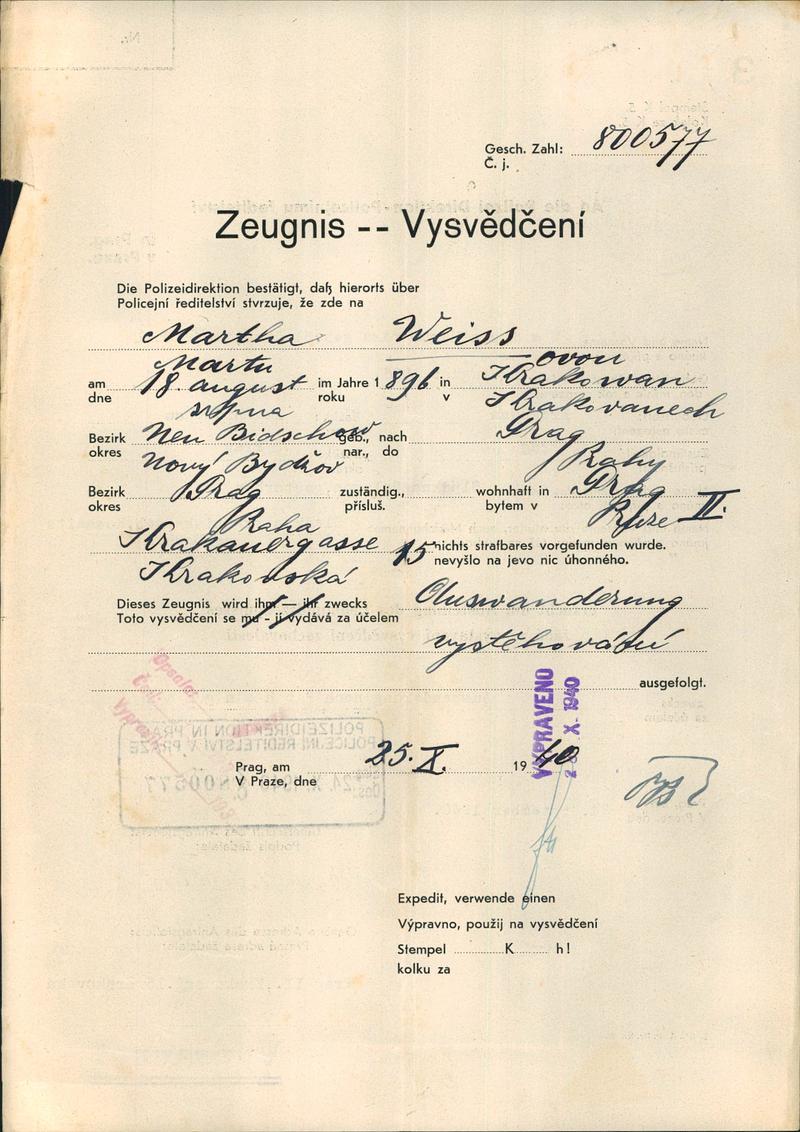 Gesch. Zahl: 800577
Č. j.
Zeugnis -- Vysvědčení
Die Polizeidirektion bestätigt, daß hierorts über
Policejní ředitelství stvrzuje, že zde na
Martha Weiss
Martu ovou
am 18. august im Jahre 1896 in Krakowan
dne srpna roku v Krakovanech
Bezirk Neu Bidschow geb., nach Prag
okres Nový Bydžov nar., do Prahy
Bezirk Prag zuständig., wohnhaft in Prag
okres Praha přísluš. bytem v Praze II.
Krakauergasse 15 nichts strafbares vorgefunden wurde.
Krakovská nevyšlo na jevo nic úhonného.
Dieses Zeugnis wird ihm — ihr zwecks Auswanderung
Toto vysvědčení se mu - jí vydává za účelem
vystěhování
ausgefolgt.
Opsala:
Četl:
VYPRAVENO
X. 1940
Prag, am 25. X. 1940
V Praze, dne
Expedit, verwende einen
Výpravno, použij na vysvědčení
Stempel K h!
kolku za